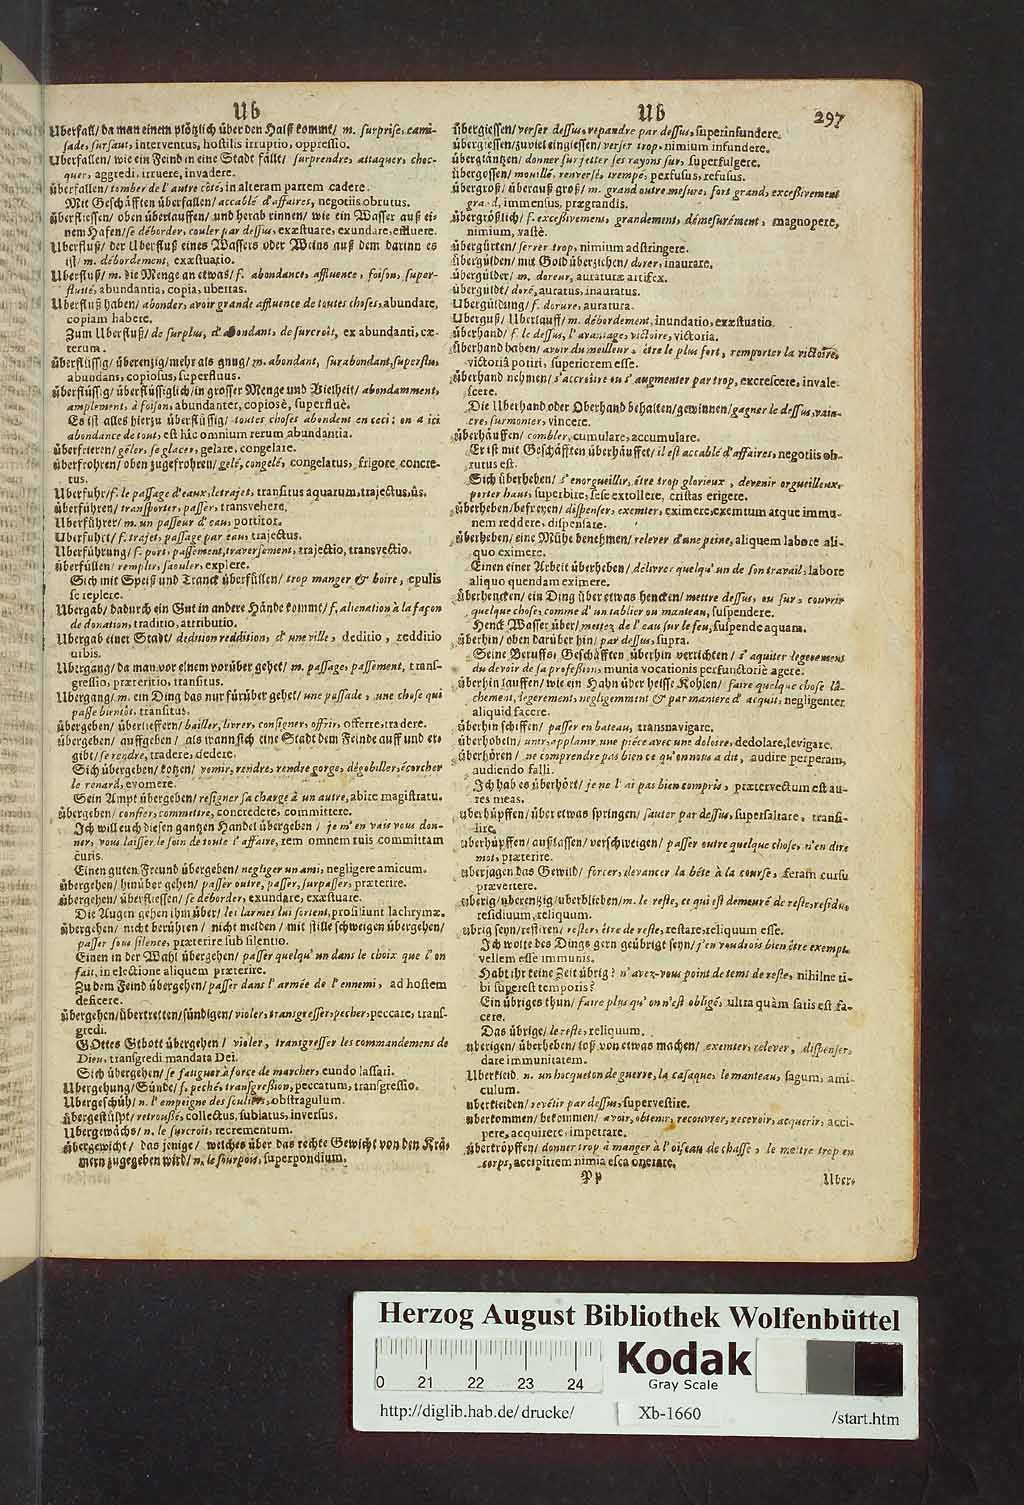 Ub
Uberfall/ da man einem plötzlich über den Halß kommt/ m. surprise, cami-
sade, sursaut, interventus, hostilis irruptio, oppressio.
Uberfallen/ wie ein Feind in eine Stadt fällt/ surprendre, attaquer, choc-
quer, aggredi, irruere, invadere.
überfallen/ tomber de l'autre côté, in alteram partem cadere.
Mit Geschäfften überfallen/ accablé d'affaires, negotiis obrutus.
überfliessen/ oben überlauffen/ und herab rinnen/ wie ein Wasser auß ei-
nem Hafen/ se déborder, couler par dessus, exæstuare, exundare, effluere.
Uberfluß/ der Uberfluß eines Wassers oder Weins auß dem darinn es
ist/ m. débordement, exæstuatio.
Uberfluß/ m. die Menge an etwas/ f. abondance, affluence, foison, super-
fluité, abundantia, copia, ubertas.
Uberfluß haben/ abonder, avoir grande affluence de toutes choses, abundare,
copiam habere.
Zum Uberfluß/ de surplus, d'abondant, de surcroit, ex abundanti, cæ-
terum.
überflüssig/ überentzig/ mehr als gnug/ m. abondant, surabondant, superflu,
abundans, copiosus, superfluus.
überflüssig/ überflüssiglich/ in grosser Menge und Vielheit/ abondamment,
amplement, à foison, abundanter, copiosè, superfluè.
Es ist alles hierzu überflüssig/ toutes choses abondent en ceci: on a ici
abondance de tout, est hîc omnium rerum abundantia.
überfrieren/ géler, se glacer, gelare, congelare.
überfrohren/ oben zugefrohren/ gelé, congelé, congelatus, frigore concre-
tus.
Uberfuhr/ f. le passage d'eaux, letrajet, transitus aquarum, trajectus, ûs.
überführen/ transporter, passer, transvehere.
Uberführer/ m. un passeur d'eau, portitor.
Uberfuhrt/ f. trajet, passage par eau, trajectus.
Uberführung/ f. port, passement, traversement, trajectio, transvectio.
überfüllen/ remplir, saouler, explere.
Sich mit Speiß und Tranck überfüllen/ trop manger & boire, epulis
se replere.
Ubergab/ dadurch ein Gut in andere Hände kommt/ f. alienation à la façon
de donation, traditio, attributio.
Ubergab einer Stadt/ dedition reddition, d'une ville, deditio, redditio
urbis.
Ubergang/ da man vor einem vorüber gehet/ m. passage, passement, trans-
gressio, præteritio, transitus.
Ubergang/ m. ein Ding das nur fürüber gehet/ une passade, une chose qui
passe bientôt, transitus.
übergeben/ überlieffern/ bailler, livrer, consigner, offrir, offerre, tradere.
übergeben/ auffgeben/ als wann sich eine Stadt dem Feinde auff und er-
gibt/ se rendre, tradere, dedere.
Sich übergeben/ kotzen/ vomir, rendre, rendre gorge, dégobiller, écorcher
le renard, evomere.
Sein Ampt übergeben/ resigner sa charge à un autre, abire magistratu.
übergeben/ confier, commettre, concredere, committere.
Ich will euch diesen gantzen Handel übergeben/ je m'en vais vous don-
ner, vous laisser le soin de toute l'affaire, rem omnem tuis committam
curis.
Einen guten Freund übergeben/ negliger un ami, negligere amicum.
übergehen/ hinüber gehen/ passer outre, passer, surpasser, præterire.
übergehen/ überfliessen/ se déborder, exundare, exæstuare.
Die Augen gehen ihm über/ les larmes lui sortent, prosiliunt lachrymæ.
übergehen/ nicht berühren/ nicht melden/ mit stillschweigen übergehen/
passer sous silence, præterire sub silentio.
Einen in der Wahl übergehen/ passer quelqu'un dans le choix que l'on
fait, in electione aliquem præterire.
Zu dem Feind übergehen/ passer dans l'armée de l'ennemi, ad hostem
deficere.
übergehen/ übertretten/ sündigen/ violer, transgresser, pecher, peccare, trans-
gredi.
GOttes Gebott übergehen/ violer, transgresser les commandemens de
Dieu, transgredi mandata Dei.
Sich übergehen/ se fatiguer à force de marcher, eundo lassari.
Ubergehung/ Sünde/ f. peché, transgression, peccatum, transgressio.
Ubergeschüh/ n. l'empeigne des souliers, obstragulum.
übergestülpt/ retroussé, collectus, sublatus, inversus.
Ubergewächs/ n. le surcroit, recrementum.
übergewicht/ das jenige/ welches über das rechte Gewicht von den Krä-
mern zugegeben wird/ n. le sourpois, superpondium.
Ub 297
übergiessen/ verser dessus, repandre par dessus, superinfundere.
übergiessen/ zuviel eingiessen/ verser trop, nimium infundere.
überglántzen/ donner sur, jetter ses rayons sur, superfulgere.
übergossen/ mouillé, renversé, trempé, perfusus, refusus.
übergroß/ überauß groß/ m. grand outre mesure, fort grand, excessivement
grand, immensus, prægrandis.
übergrößlich/ f. excessivement, grandement, démesurément, magnopere,
nimium, vastè.
übergürten/ serrer trop, nimium adstringere.
übergülden/ mit Gold überziehen/ dorer, inaurare.
übergülder/ m. doreur, auraturæ artifex.
übergüldt/ doré, auratus, inauratus.
Ubergüldung/ f. dorure, auratura.
Uberguß/ Uberlauff/ m. débordement, inundatio, exæstuatio.
überhand/ f. le dessus, l'avantage, victoire, victoria.
überhand haben/ avoir du meilleur, être le plus fort, remporter la victoire,
victoriâ potiri, superiorem esse.
überhand nehmen/ s'accroitre ou s'augmenter par trop, excrescere, invale-
scere.
Die Uberhand oder Oberhand behalten/ gewinnen/ gagner le dessus, vain-
cre, surmonter, vincere.
überhäuffen/ combler, cumulare, accumulare.
Er ist mit Geschäfften überhäuffet/ il est accablé d'affaires, negotiis ob-
rutus est.
Sich überheben/ s'enorgueillir, être trop glorieux, devenir orgueilleux,
porter haut, superbire, sese extollere, cristas erigere.
überheben/ befreyen/ dispenser, exemter, eximere, exemtum atque immu-
nem reddere, dispensare.
überheben/ eine Mühe benehmen/ relever d'une peine, aliquem labore ali-
quo eximere.
Einen einer Arbeit überheben/ délivrer quelqu'un de son travail, labore
aliquo quendam eximere.
überhencken/ ein Ding über etwas hencken/ mettre dessus, ou sur, couvrir
quelque chose, comme d'un tablier ou manteau, suspendere.
Henck Wasser über/ mettez de l'eau sur le feu, suspende aquam.
überhin/ oben darüber hin/ par dessus, supra.
Seine Beruffs-Geschäfften überhin verrichten/ s'aquiter legerement
du devoir de sa profession, munia vocationis perfunctoriè agere.
überhin lauffen/ wie ein Hahn über heisse Kohlen/ faire quelque chose lâ-
chement, legerement, negligemment & par maniere d'acquit, negligenter
aliquid facere.
überhin schiffen/ passer en bateau, transnavigare.
überhobeln/ unir, applanir une piéce avec une doloire, dedolare, levigare.
überhören/ ne comprendre pas bien ce qu'on nous a dit, audire perperam,
audiendo falli.
Ich hab es überhört/ je ne l'ai pas bien compris, prætervectum est au-
res meas.
überhüpffen/ über etwas springen/ sauter par dessus, supersaltare, transi-
lire.
überhüpffen/ außlassen/ verschweigen/ passer outre quelque chose, n'en dire
mot, præterire.
überjagen das Gewild/ forcer, devancer la bête à la course, feram cursu
prævertere.
überig/ überentzig/ überblieben/ m. le reste, ce qui est demeuré de reste, residu,
residuum, reliquum.
übrig seyn/ restiren/ rester, être de reste, restare, reliquum esse.
Ich wolte des Dings gern geübrigt seyn/ j'en voudrois bien être exempt,
vellem esse immunis.
Habt ihr keine Zeit übrig? n'avez-vous point de tems de reste, nihilne ti-
bi superest temporis?
Ein übriges thun/ faire plus qu'on n'est obligé, ultra quàm satis est fa-
cere.
Das übrige/ le reste, reliquum.
überigen/ überheben/ loß von etwas machen/ exemter, relever, dispenser,
dare immunitatem.
Uberkleid/ n. un hocqueton de guerre, la casaque, le manteau, sagum, ami-
culum.
überkleiden/ revêtir par dessus, supervestire.
überkommen/ bekommen/ avoir, obtenir, recouvrer, recevoir, acquerir, acci-
pere, acquirere, impetrare.
überkröpffen/ donner trop à manger à l'oiseau de chasse, le mettre trop en
corps, accipitrem nimia esca onerare.
Pp Uber-
Herzog August Bibliothek Wolfenbüttel
0 21 22 23 24
Kodak
Gray Scale
http://diglib.hab.de/drucke/ Xb-1660 /start.htm